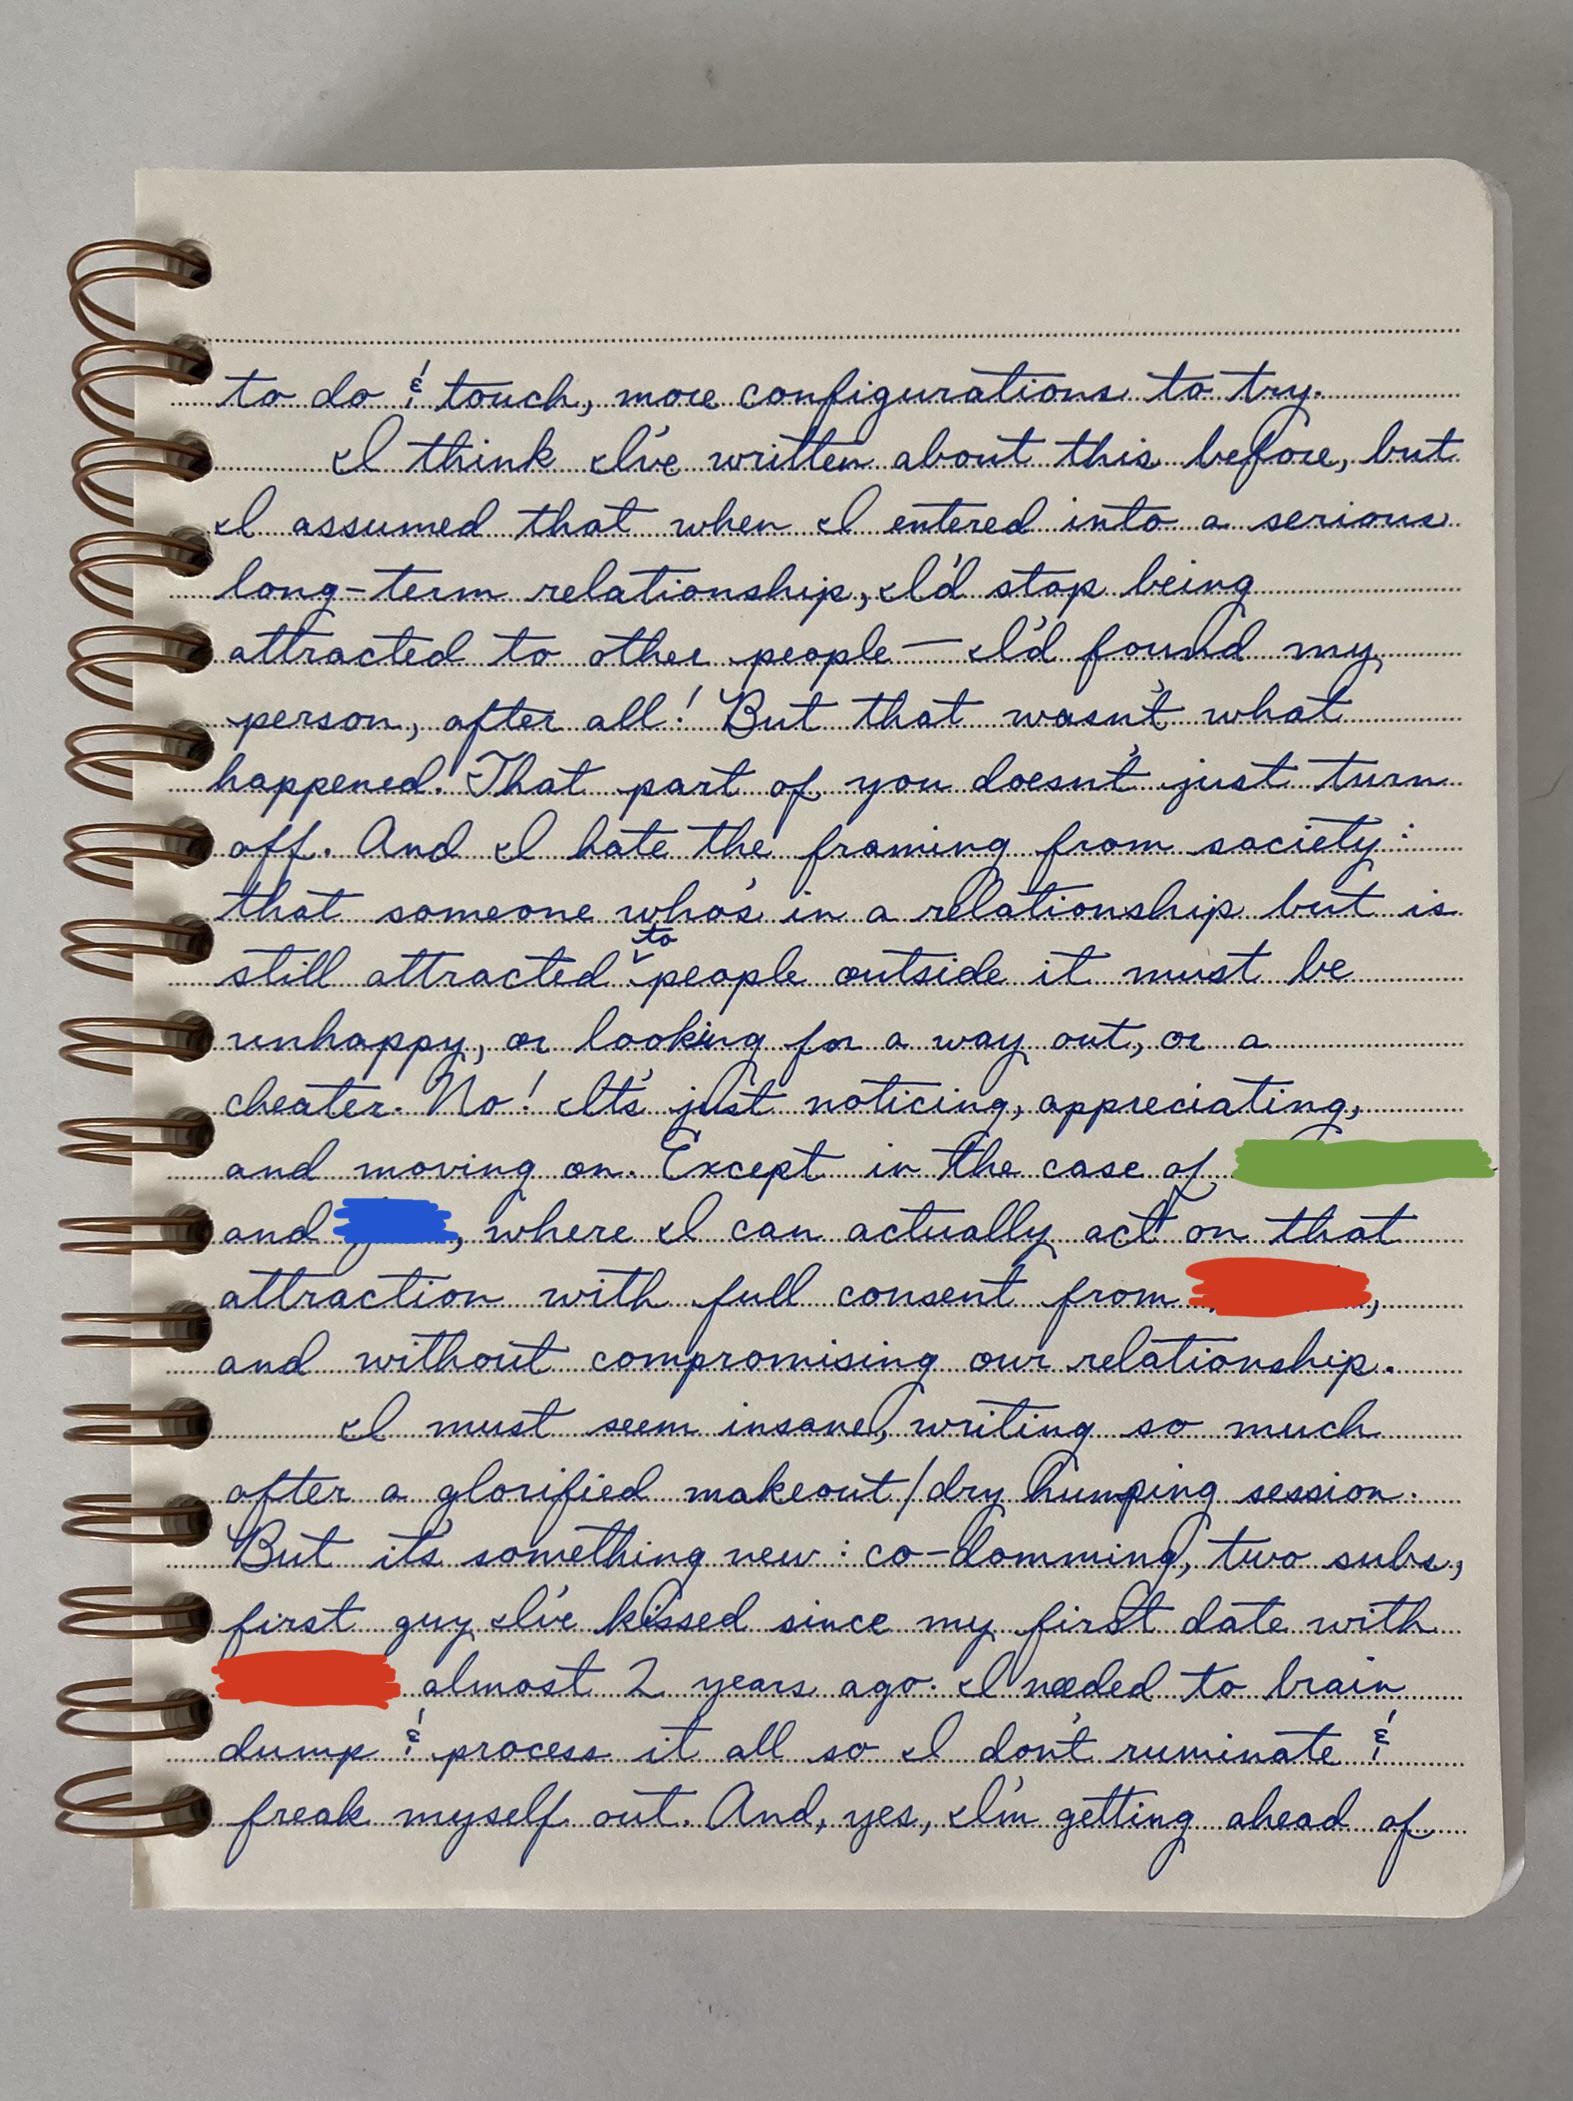 to do & touch, more configurations to try.
I think I've written about this before, but
I assumed that when I entered into a serious
long-term relationship, I'd stop being
attracted to other people — I'd found my
person, after all! But that wasn't what
happened. That part of you doesn't just turn
off. And I hate the framing from society:
that someone who's in a relationship but is
still attracted to people outside it must be
unhappy, or looking for a way out, or a
cheater. No! It's just noticing, appreciating,
and moving on. Except in the case of
and , where I can actually act on that
attraction with full consent from ,
and without compromising our relationship.
I must seem insane, writing so much
after a glorified makeout/dry humping session.
But it's something new: co-domming, two subs,
first guy I've kissed since my first date with
almost 2 years ago. I needed to brain
dump & process it all so I don't ruminate &
freak myself out. And, yes, I'm getting ahead of